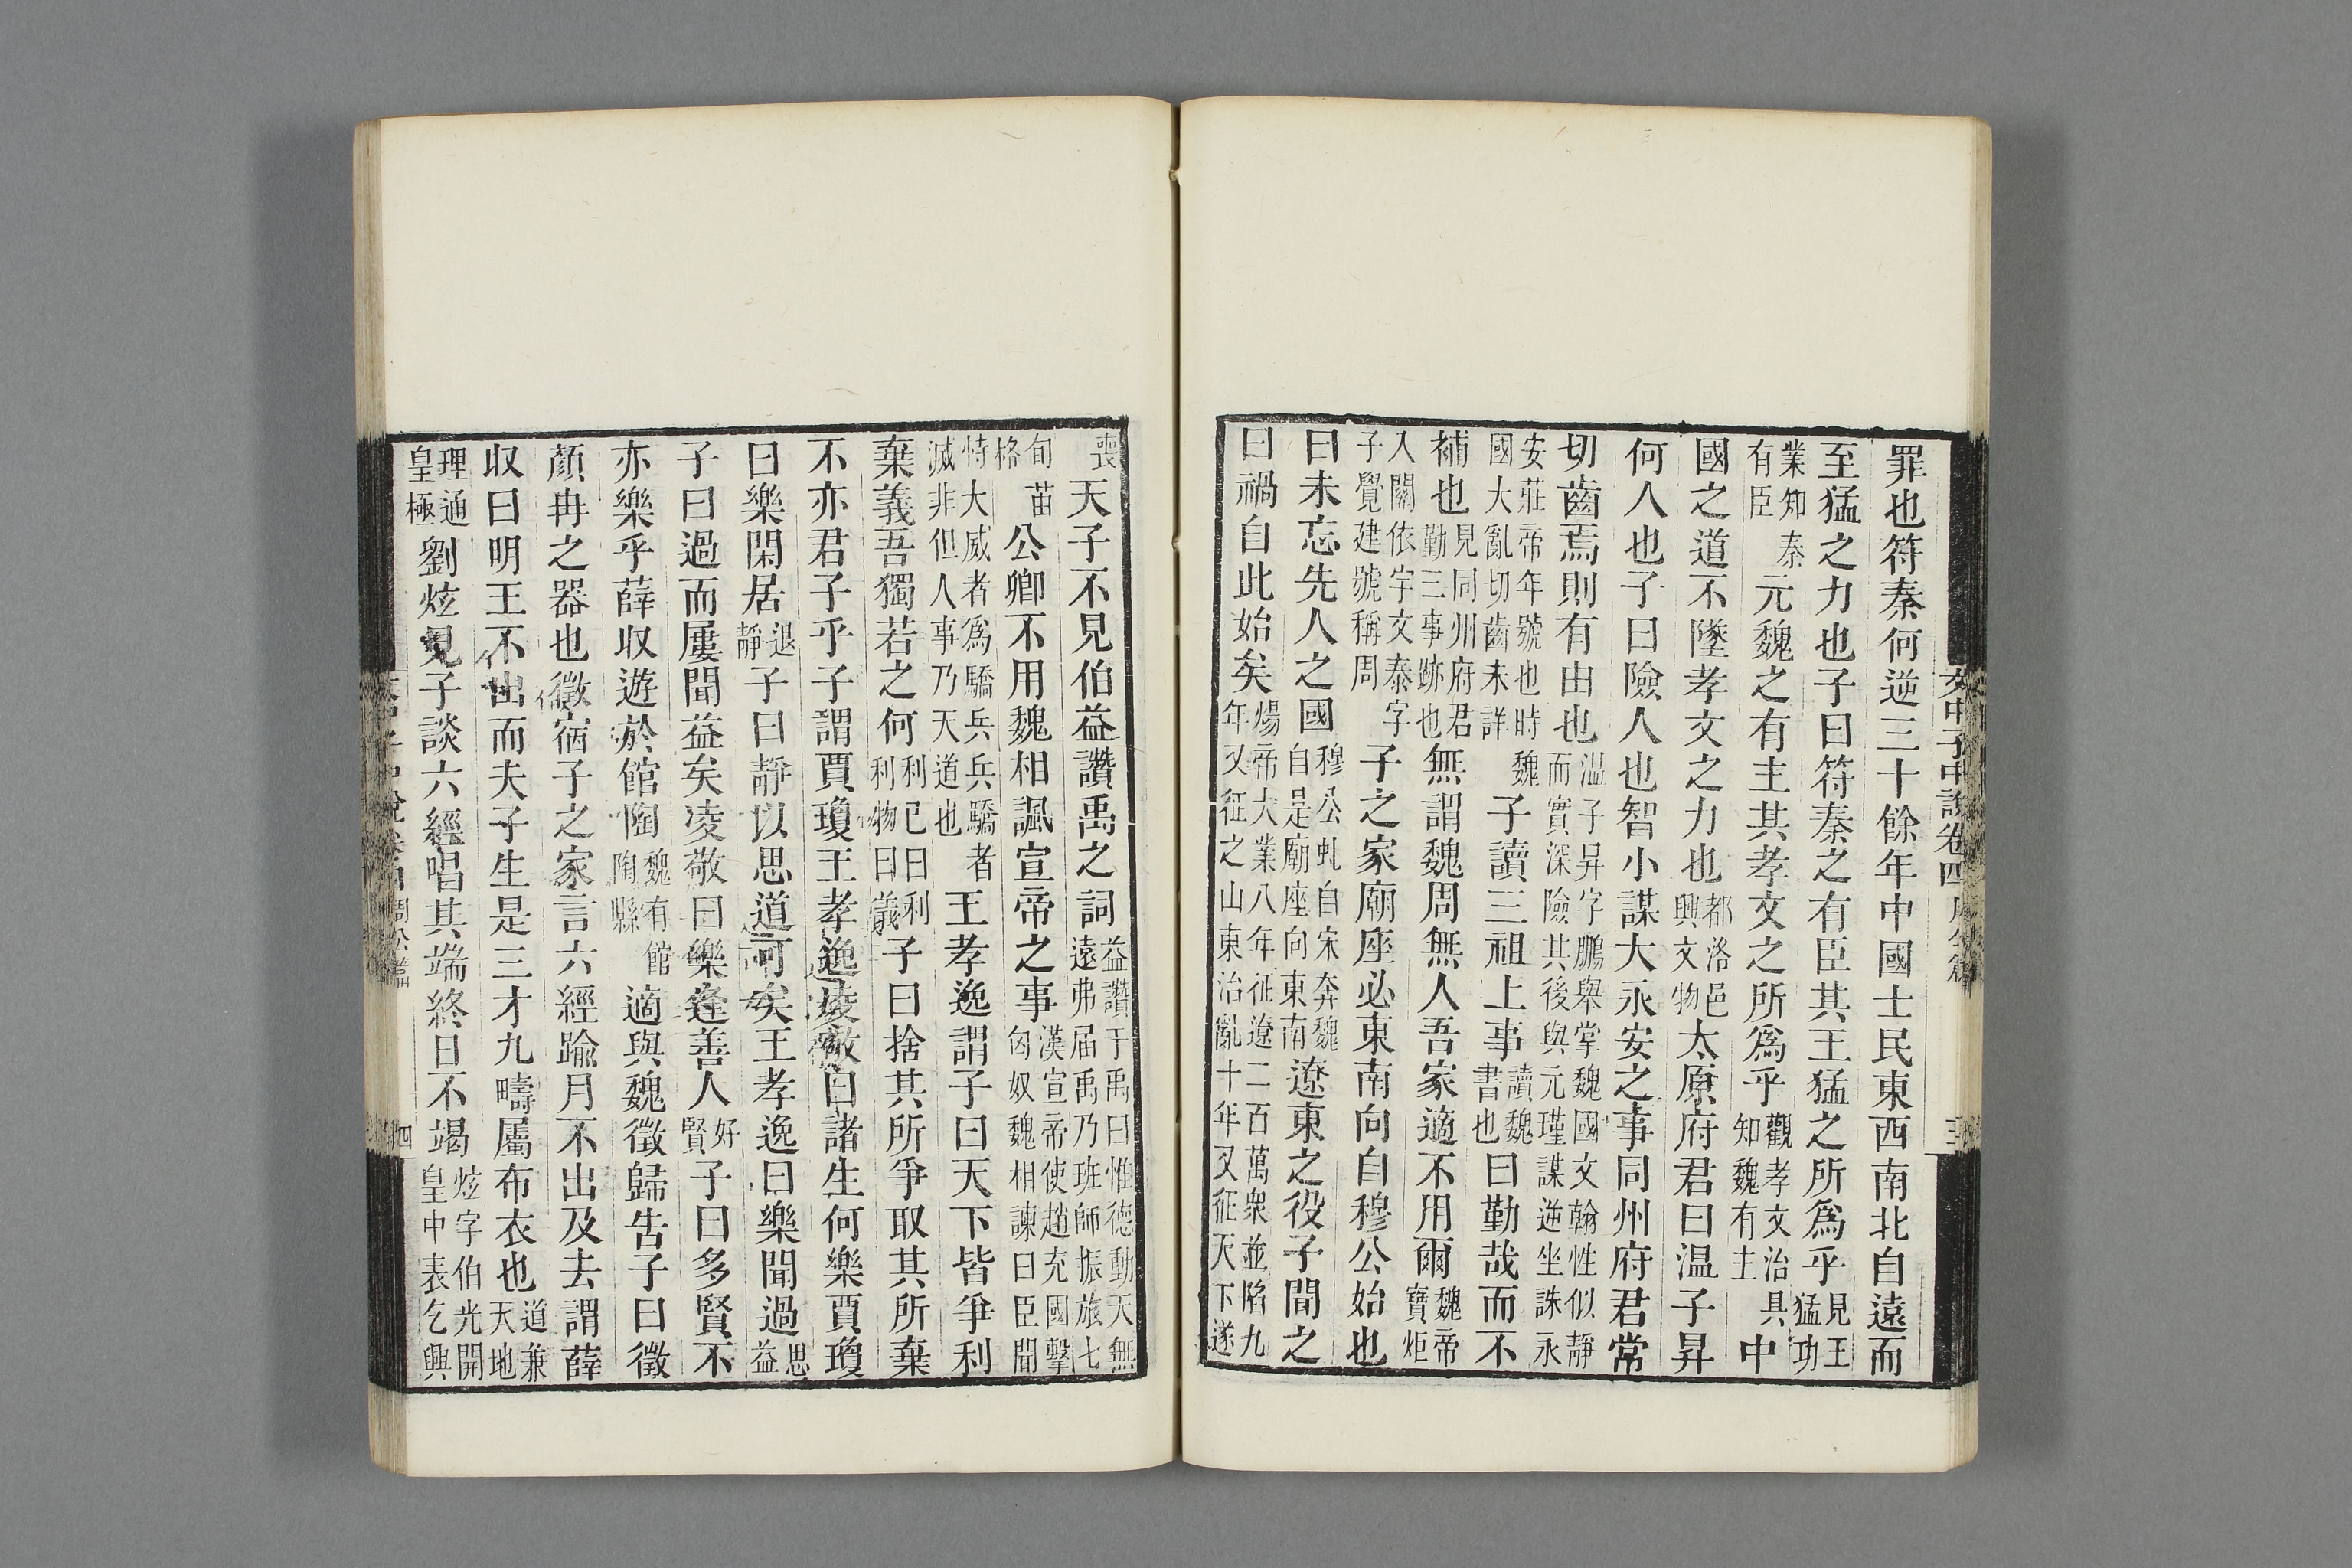 文中子中說卷四周公篇
三
罪也符秦何逆三十餘年中國士民東西南北自遠而
至猛之力也子曰符秦之有臣其王猛之所爲乎見王猛功
業知秦有臣元魏之有主其孝文之所爲乎觀孝文治具知魏有主中
國之道不墜孝文之力也都洛邑興文物太原府君曰温子昇
何人也子曰險人也智小謀大永安之事同州府君常
切齒焉則有由也温子昇字鵬舉掌魏國文翰性似靜而實深險其後與元瑾謀逆坐誅永
安莊帝年號也時魏國大亂切齒未詳子讀三祖上事讀魏書也曰勤哉而不
補也見同州府君勤三事跡也無謂魏周無人吾家適不用爾魏帝寶炬
入關依宇文泰字子覺建號稱周子之家廟座必東南向自穆公始也
曰未忘先人之國穆公虬自宋奔魏自是廟座向東南遼東之役子聞之
曰禍自此始矣煬帝大業八年征遼二百萬衆並陷九年又征之山東治亂十年又征天下遂
喪天子不見伯益讚禹之詞益讚于禹曰惟德動天無遠弗届禹乃班師振旅七
旬苗格公卿不用魏相諷宣帝之事漢宣帝使趙充國擊匈奴魏相諫曰臣聞
恃大威者爲驕兵兵驕者滅非但人事乃天道也王孝逸謂子曰天下皆爭利
棄義吾獨若之何利已曰利利物曰義子曰捨其所爭取其所棄
不亦君子乎子謂賈瓊王孝逸凌敬曰諸生何樂賈瓊
曰樂閑居退靜子曰靜以思道可矣王孝逸曰樂聞過思益
子曰過而屢聞益矣凌敬曰樂逢善人好賢子曰多賢不
亦樂乎薛收遊於館陶魏有館陶縣適與魏徵歸告子曰徵
顏冉之器也徵宿子之家言六經踰月不出及去謂薛
収曰明王不出而夫子生是三才九疇屬布衣也道兼天地
理通皇極劉炫見子談六經唱其端終日不竭炫字伯光開皇中表乞興
四